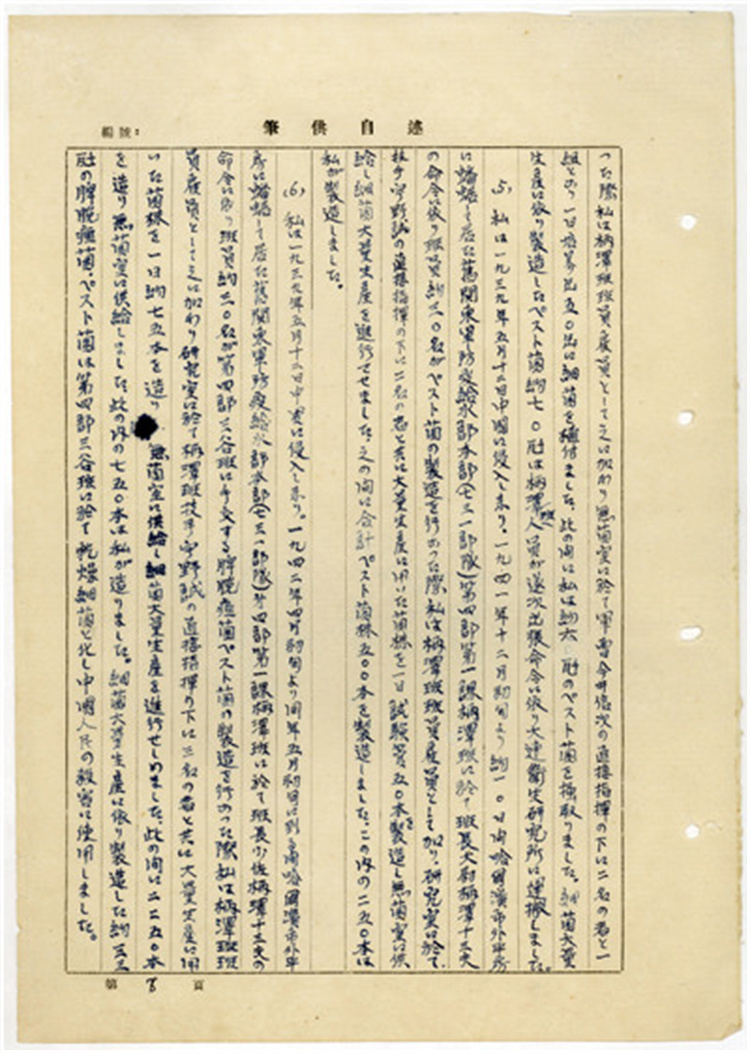 編號:
述自供筆
った際私は柄澤班班員雇員として之に加わり無菌室に於て軍曹今井 次の直接指揮の下に二名の者と一
組となり一日培養 五〇 に細菌を植付ました。此の間に私は約六 のペスト菌を掻取りました。細菌大量
生産に依り製造したペスト菌約七〇 は柄澤班人員が逐次出張命令に依り大連衛生研究所に運搬しました。
(5) 私は一九三九年五月十二日中國に侵入し来り、一九四一年十二月初旬より約一〇日間哈爾濱市外平房
に蟠踞して居た舊関東軍防疫給水部本部(七三一部隊)第四部第一課柄澤班に於て班長大尉柄澤十三夫
の命令に依り班員約三〇名がペスト菌の製造を行なった際、私は柄澤班班員雇員として加り、研究室に於て、
技手宇野誠の直接指揮の下に二名の者と共に大量生産に用いた菌株を一日試験管五〇本を製造し無菌室に供
給し細菌大量生産を進行させました。之の間に合計ペスト菌株五〇〇本を製造しました。この内の二五〇本は
私が製造しました。
(6) 私は一九三九年五月十二日中國に侵入し来り。一九四二年四月初旬より同年五月初旬に到る間哈爾濱市外平
房に蟠踞して居た舊関東軍防疫給水部本部(七三一部隊)第四部第一課柄澤班に於て班長少佐柄澤十三夫の
命令に依り班員約三〇名が第四部三谷班に手交する脾脱疽菌ペスト菌の製造を行なった際私は柄澤班班
員雇員として之に加わり研究室に於て柄澤班技手宇野誠の直接指揮の下に三名の者と共に大量生産に用
いた菌株を一日約七五本を造り 無菌室に供給し細菌大量生産を進行せしめました。此の間に二二五〇本
を造り無菌室に供給しました。此の内の七五〇本は私が造りました。細菌大量生産に依り製造した約三三
 の脾脱疽菌、ペスト菌は第四部三谷班に於て乾燥細菌と化し中國人民の殺害に使用しました。
第 8 頁